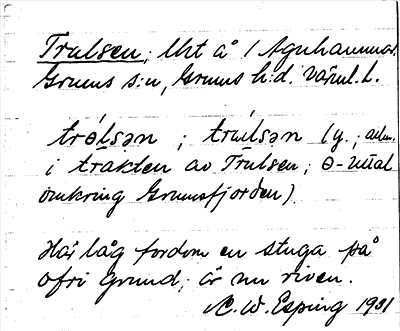 Trulsen; lht å 1 Agnhammar.
Grums s:n, Grums h:d. Värml. l.
trө́lsən ; trúlsən (y.; allm.
i trakten av Trulsen; ө-uttal
omkring Grumsfjorden).
Här låg fordom en stuga på
ofri grund; är nu riven.
C. W. Esping 1931